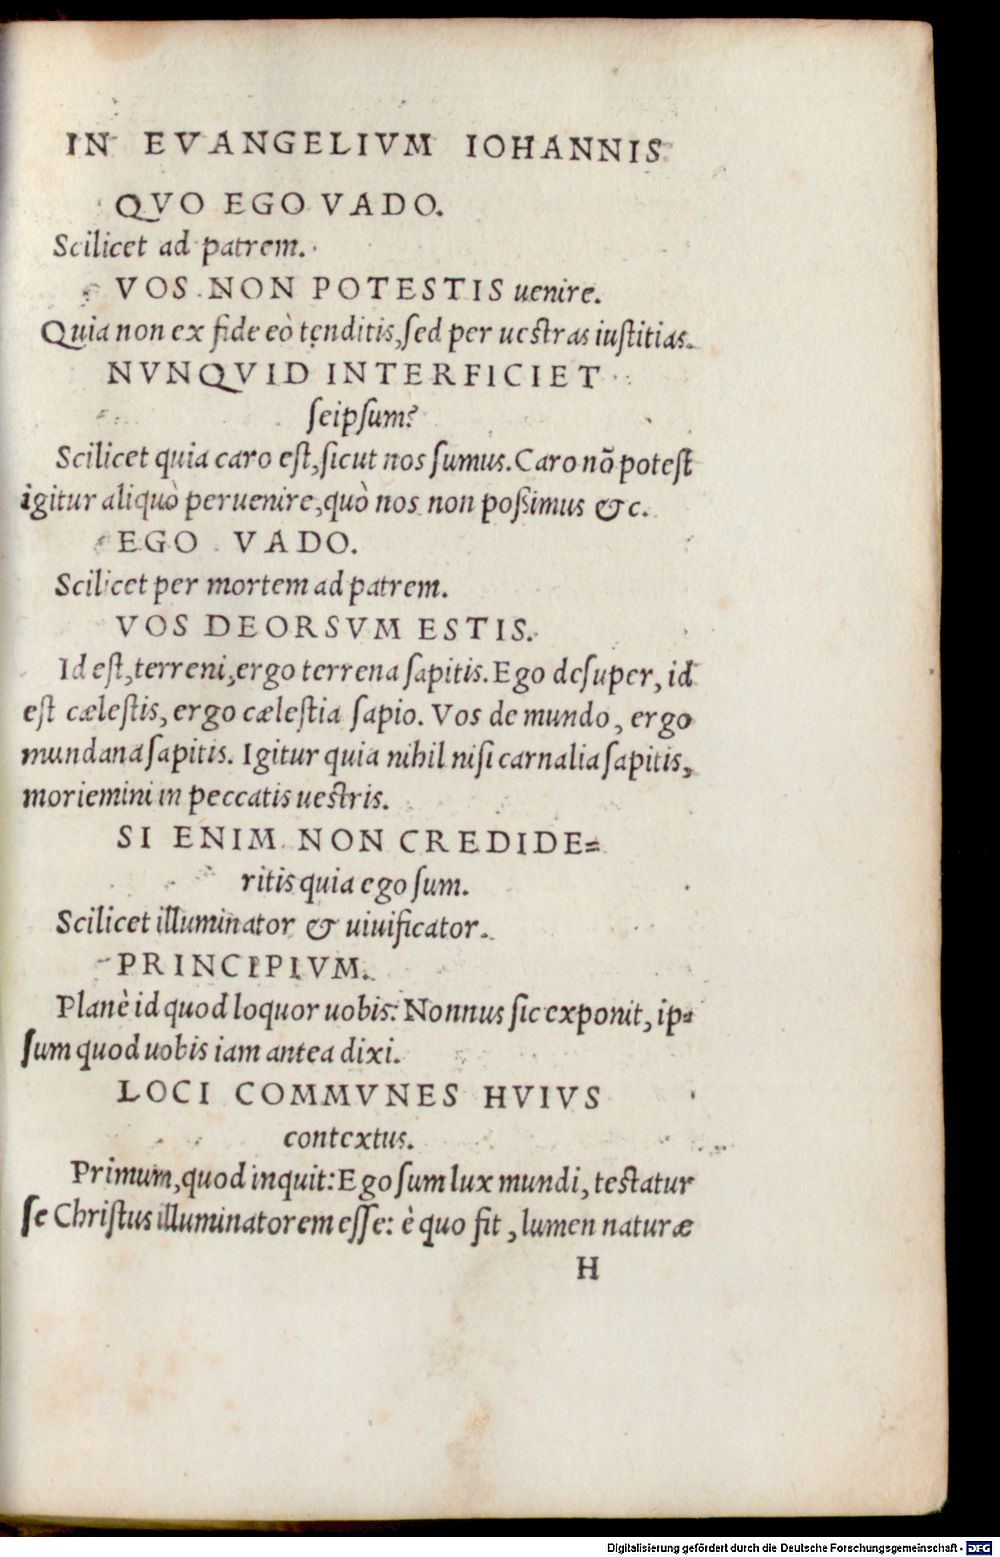 IN EVANGELIVM IOHANNIS
QVO EGO VADO.
Scilicet ad patrem.
VOS NON POTESTIS uenire.
Quia non ex fide eò tenditis, sed per uestras iustitias.
NVNQVID INTERFICIET
seipsum?
Scilicet quia caro est, sicut nos sumus. Caro nõ potest
igitur aliquò peruenire, quò nos non poßimus &c.
EGO VADO.
Scilicet per mortem ad patrem.
VOS DEORSVM ESTIS.
Id est, terreni, ergo terrena sapitis. Ego desuper, id
est cælestis, ergo cælestia sapio. Vos de mundo, ergo
mundana sapitis. Igitur quia nihil nisi carnalia sapitis,
moriemini in peccatis uestris.
SI ENIM NON CREDIDE=
ritis quia ego sum.
Scilicet illuminator & uiuificator.
PRINCIPIVM.
Planè id quod loquor uobis: Nonnus sic exponit, ip=
sum quod uobis iam antea dixi.
LOCI COMMVNES HVIVS
contextus.
Primum, quod inquit: Ego sum lux mundi, testatur
se Christus illuminatorem esse: è quo fit, lumen naturæ
H
Digitalisierung gefördert durch die Deutsche Forschungsgemeinschaft - DFG